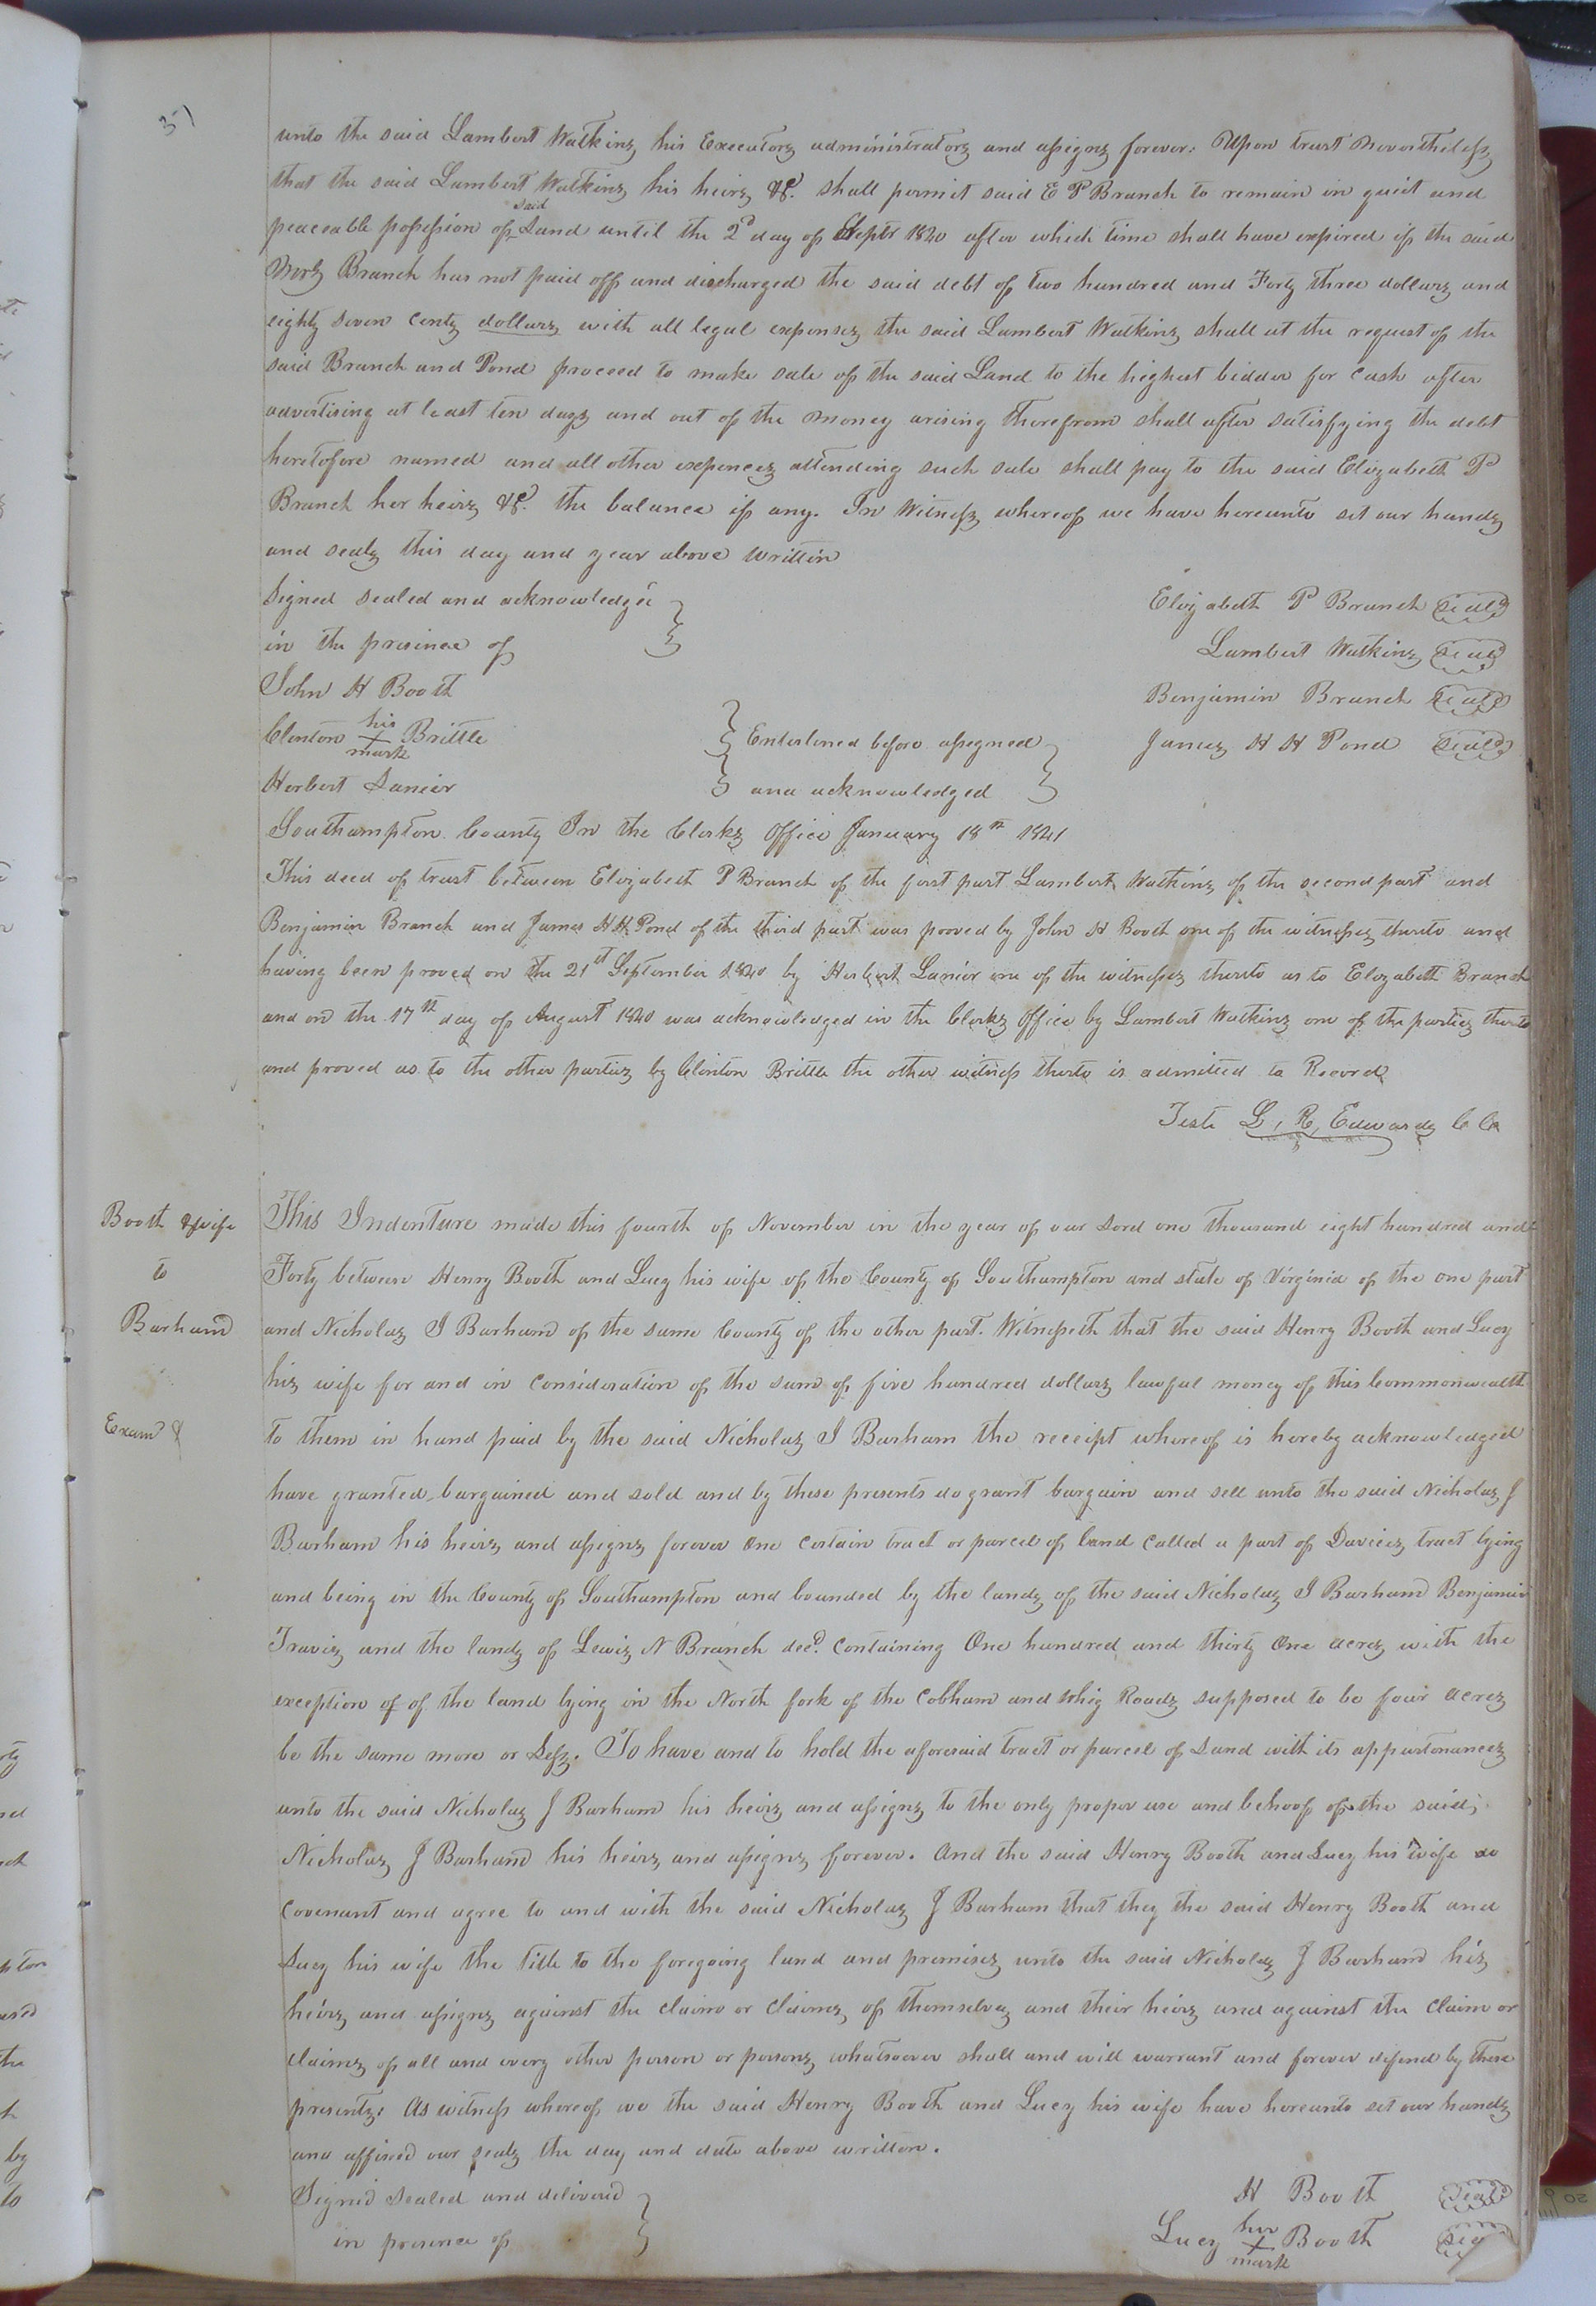 37
unto the said Lambert Watkins his Executors administrators and assigns forever: Upon trust Nevertheless
that the said Lambert Watkins his heirs &c. shall permit said E P Branch to remain in quiet and
peaceable possession of said Land until the 2d day of Septr 1840 after which time shall have expired if the said
Mrs Branch has not paid off and discharged the said debt of two hundred and Forty three dollars and
eighty seven cents dollars with all legal expenses the said Lambert Watkins shall at the request of the
said Branch and Pond proceed to make sale of the said Land to the highest bidder for Cash after
advertising at least ten days and out of the money arising therefrom shall after satisfying the debt
heretofore named and all other expences attending such sale shall pay to the said Elizabeth P
Branch her heirs &c. the balance if any. In Witness whereof we have hereunto set our hands
and seals this day and year above written
Signed sealed and acknowledged
in the presence of
Elizabeth P Branch seal
Lambert Watkins seal
John H Booth
Benjamin Branch seal
Clinton his X mark Brittle
Enterlined before assigned
and acknowledged
James H H Pond seal
Herbert Lanier
Southampton County In the Clerks Office January 18th 1841
This deed of trust between Elizabeth P Branch of the first part Lambert Watkins of the second part and
Benjamin Branch and James H H Pond of the third part was prooved by John H Booth one of the witnesses thereto and
having been proved on the 21st September 1840 by Herbert Lanier one of the witnesses thereto as to Elizabeth Branch
and on the 17th day of August 1840 was acknowledged in the Clerks Office by Lambert Watkins one of the parties thereto
and proved as to the other parties by Clinton Brittle the other witness thereto is admitted to Record
Teste L, R, Edwards C Ck
Booth & wife
to
Barham
Examd &
This Indenture made this fourth of November in the year of our Lord one thousand eight hundred and
Forty between Henry Booth and Lucy his wife of the County of Southampton and state of Virginia of the one part
and Nicholas J Barham of the same County of the other part. Witnesseth that the said Henry Booth and Lucy
his wife for and in Consideration of the sum of five hundred dollars lawful money of this Commonwealth
to them in hand paid by the said Nicholas J Barham the receipt whereof is hereby acknowledged
have granted, bargained and sold and by these presents do grant bargain and sell unto the said Nicholas J
Barham his heirs and assigns forever One certain tract or parcel of land Called a part of Davies tract lying
and being in the County of Southampton and bounded by the lands of the said Nicholas J Barham Benjamin
Travis and the lands of Lewis N Branch decd. Containing One hundred and thirty One acres with the
exception of of the land lying in the North fork of the Cobham and Whig Roads supposed to be four acres
be the same more or Less. To have and to hold the aforesaid tract or parcel of Land with its appurtenances
unto the said Nicholas J Barham his heirs and assigns to the only proper use and behoof of the said,
Nicholas J Barham his heirs and assigns forever. And the said Henry Booth and Lucy his wife do
Covenant and agree to and with the said Nicholas J Barham that they the said Henry Booth and
Lucy his wife the title to the foregoing land and premises unto the said Nicholas J Barham his
heirs and assigns against the claim or claims of themselves and their heirs and against the claim or
claims of all and every other person or persons whatsoever shall and will warrant and forever defend by these
presents. As witness whereof we the said Henry Booth and Lucy his wife have hereunto set our hands
and affixed our seals the day and date above written.
Signed sealed and delivered
in presence of
H Booth seal
Lucy her X mark Booth sea